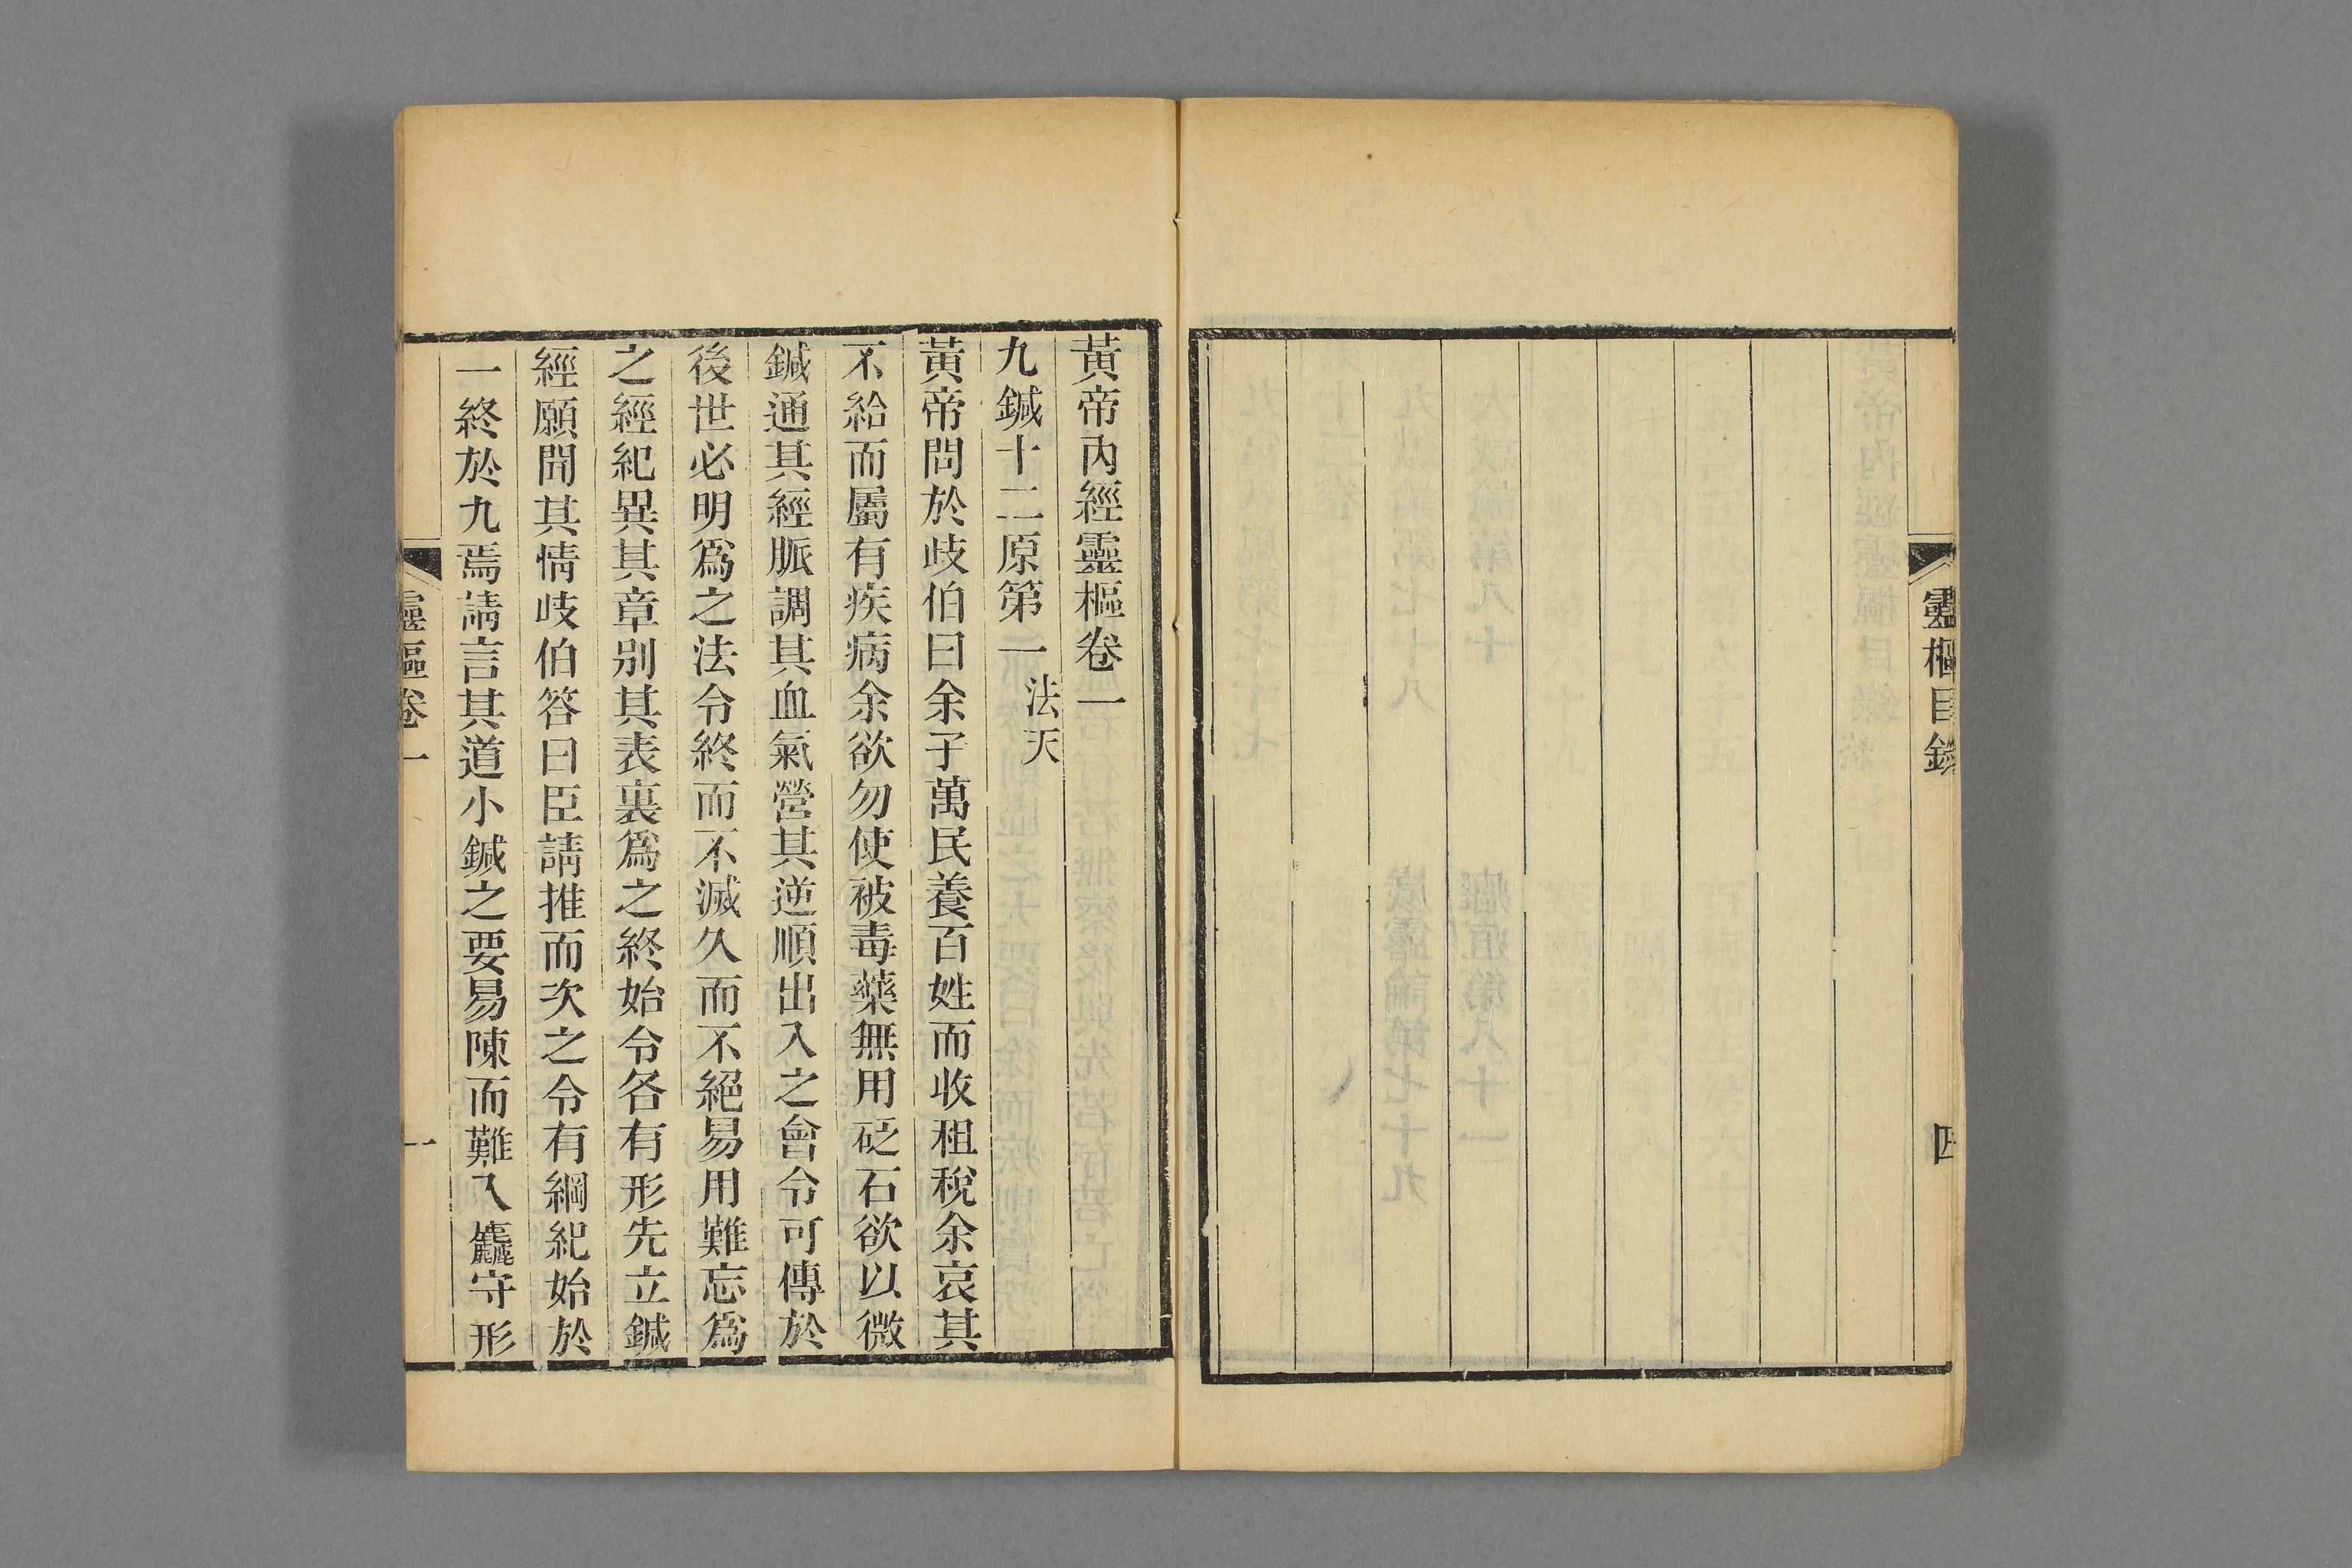 靈樞目錄
四
黃帝內經靈樞卷一
九鍼十二原第一 法天
黃帝問於歧伯曰余子萬民養百姓而收租稅余哀其
不給而屬有疾病余欲勿使被毒藥無用砭石欲以微
鍼通其經脈調其血氣營其逆順出入之會令可傳於
後世必明爲之法令終而不滅久而不絕易用難忘爲
之經紀異其章別其表裏爲之終始令各有形先立鍼
經願聞其情岐伯答曰臣請推而次之令有綱紀始於
一終於九焉請言其道小鍼之要易陳而難入麤守形
靈樞卷一
一